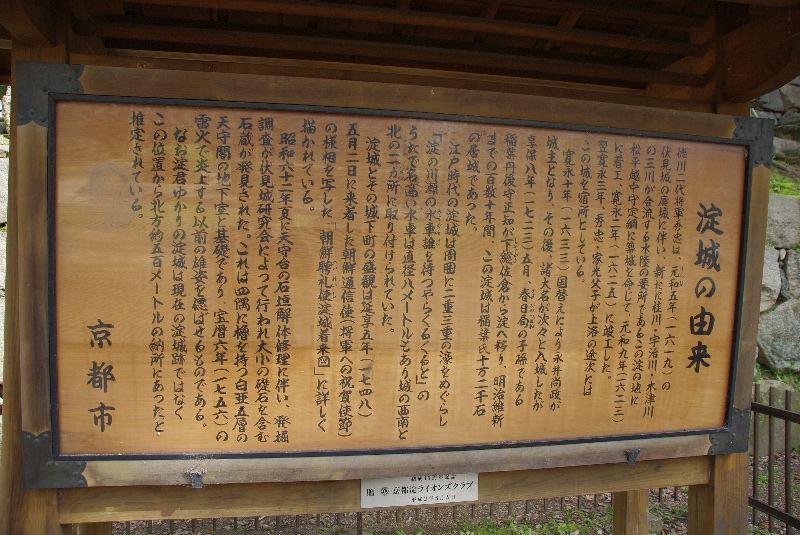 淀城の由来
徳川二代将軍秀忠は、元和五年(一六一九)の
伏見城の廃城に伴い、新たに桂川・宇治川・木津川
の三川が合流する水陸の要所であるこの淀の地に
松平越中守定綱に築城を命じて、元和九年(一六二三)
に着工、寛永二年(一六二五)に竣工した。
翌寛永三年、秀忠・家光父子が上洛の途次には
この城を宿所としている。
寛永十年(一六三三)国替えにより永井尚政が
城主となり、その後、諸大名が次々と入城したが
享保八年(一七二三)五月、春日局の子孫である
稲葉丹後守正知が下総佐倉から淀へ移り、明治維新
までの百数十年間、この淀城は稲葉氏十万二千石
の居城であった。
江戸時代の淀城は周囲に二重三重の濠をめぐらし
「淀の川瀬の水車誰を待つやらくるくると」の
うたで名高い水車は直径八メートルもあり城の西南と
北の二カ所に取り付けられていた。
淀城とその城下町の盛観は延享五年(一七四八)
五月二日に来着した朝鮮通信使(将軍への祝賀使節)
の様相を写した「朝鮮聘礼使淀城着来図」に詳しく
描かれている。
昭和六十二年夏に天守台の石垣解体修理に伴い、発掘
調査が伏見城研究会によって行われ大小の礎石を含む
石蔵が発見された。これは四隅に櫓を持つ白亜五層の
天守閣の地下室と基礎であり、宝暦六年(一七五六)の
雷火で炎上する以前の雄姿を偲ばせるものである。
なお淀君ゆかりの淀城は現在の淀城跡ではなく
この位置から北方約五百メートルの納所にあったと
推定されている。
京都市
贈 京都淀ライオンズクラブ